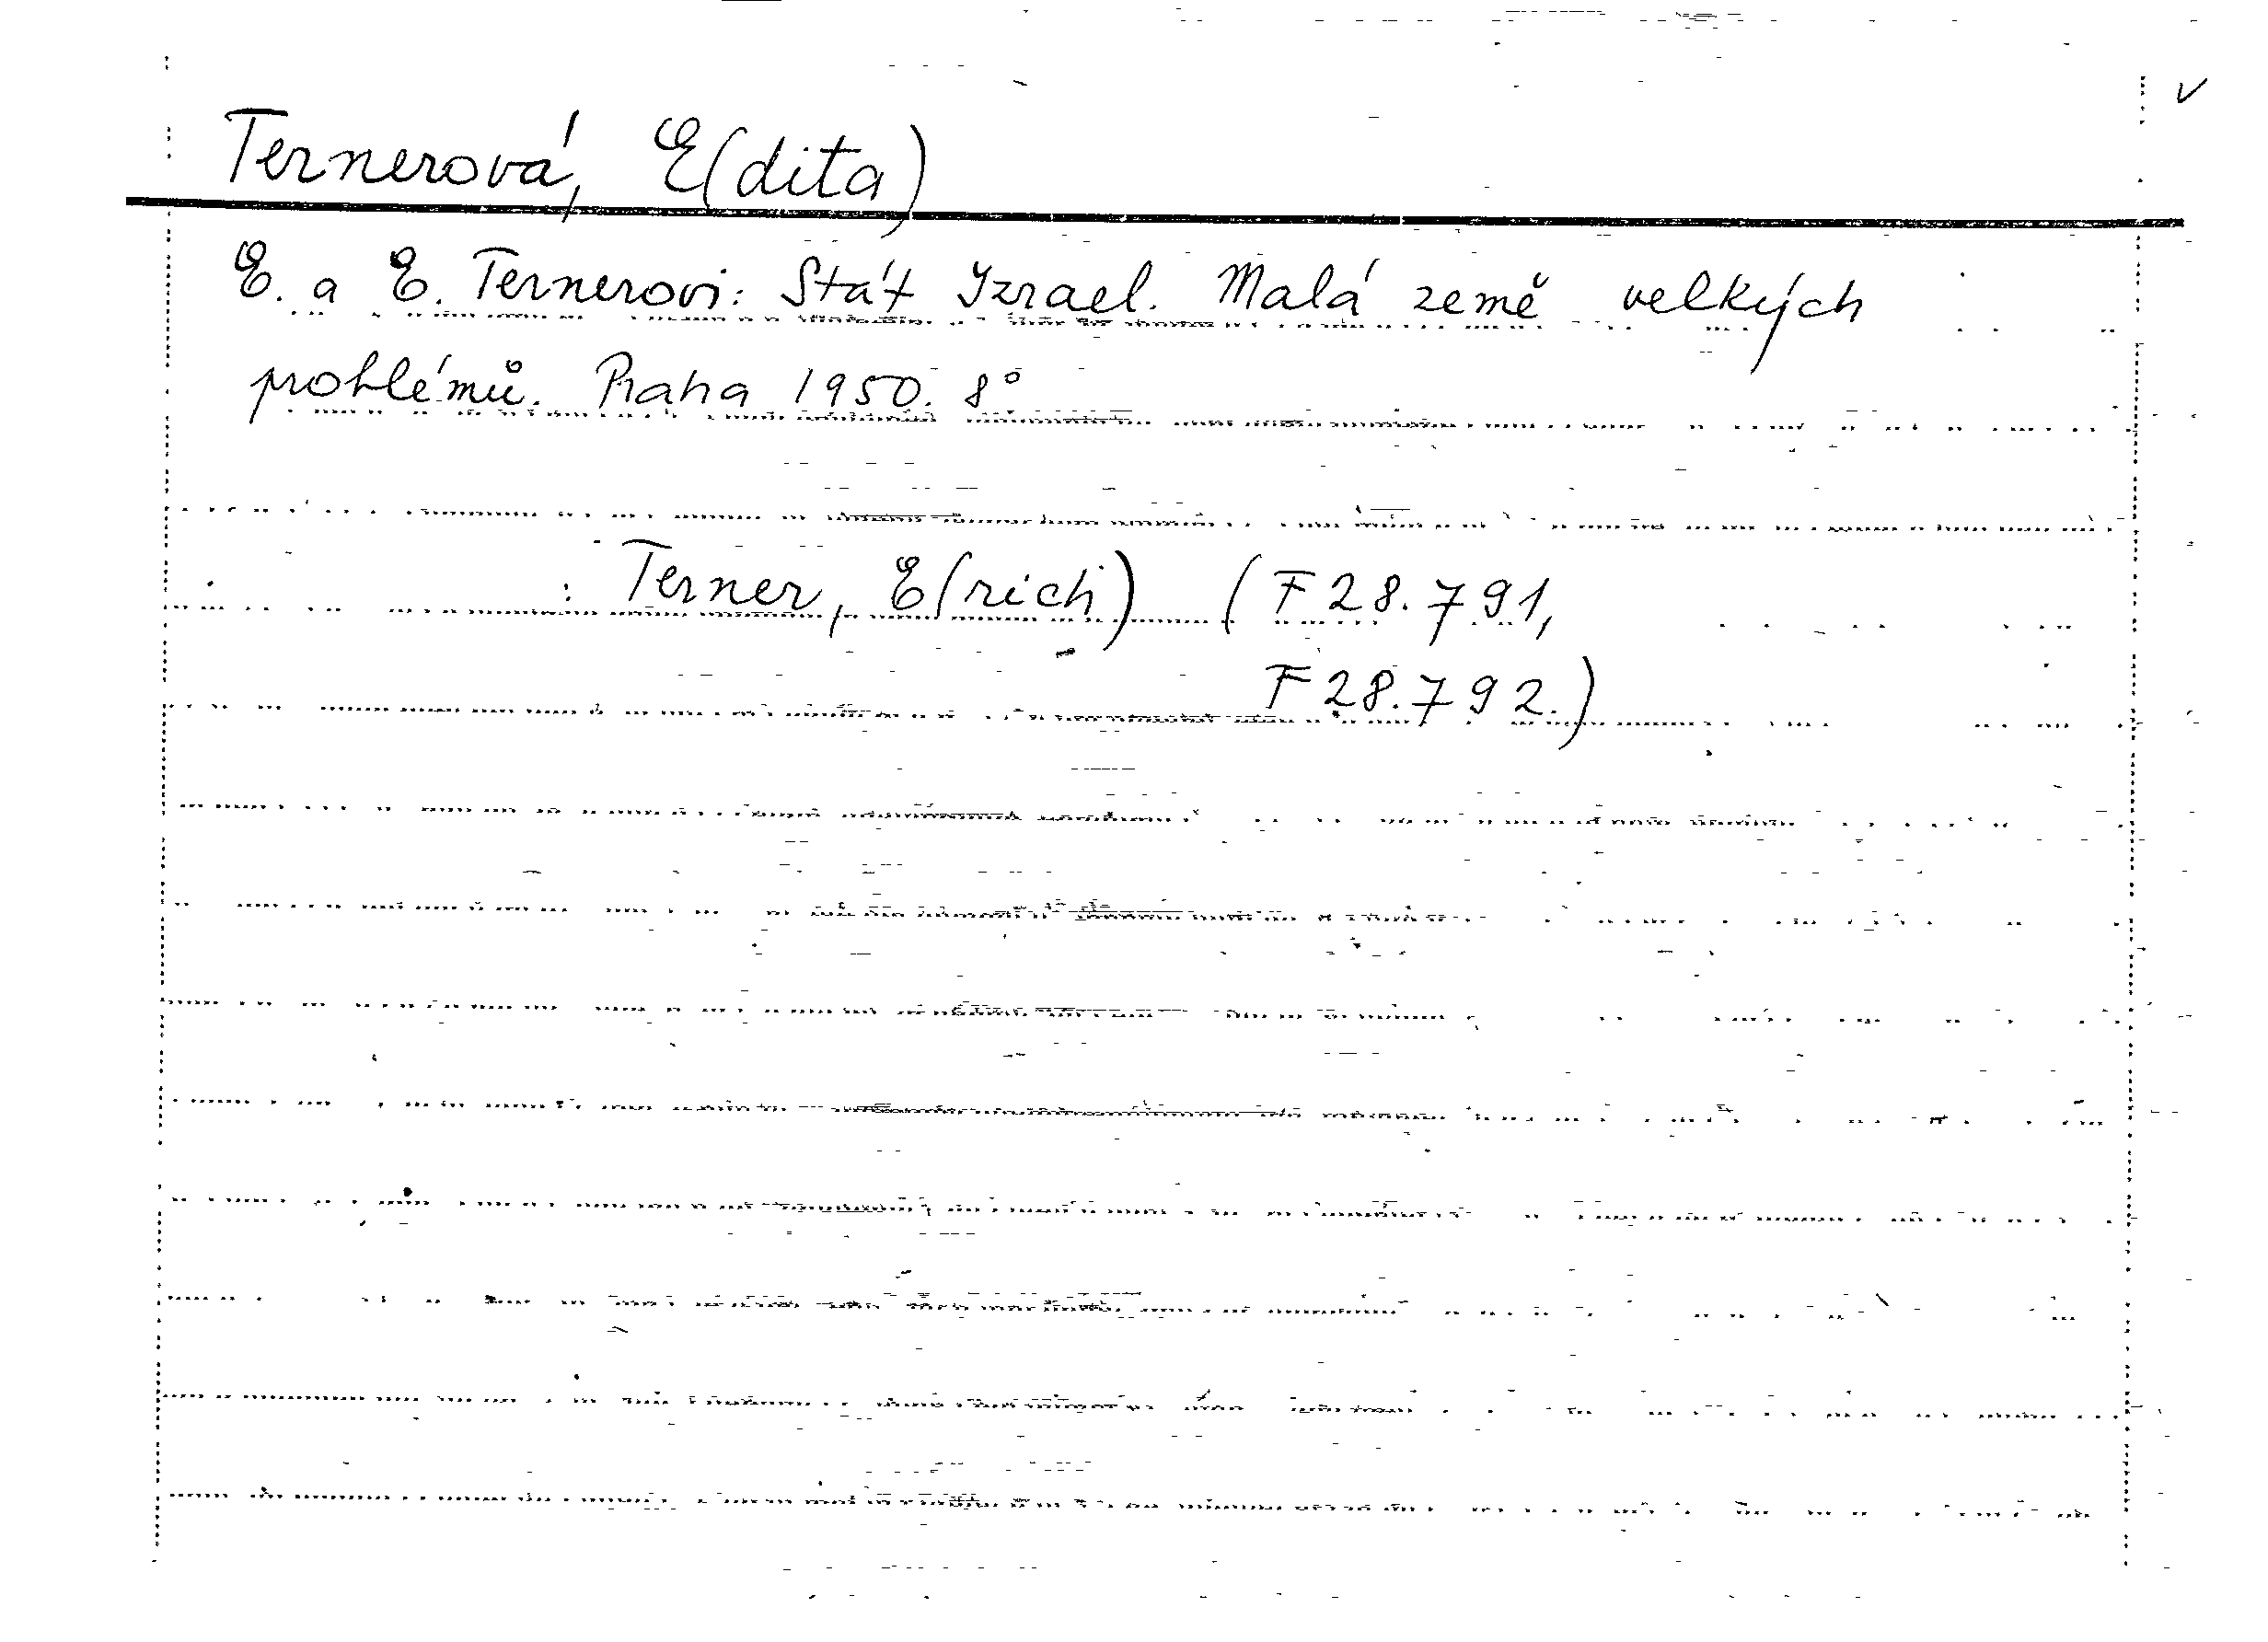 Ternerová, E(dita)
E. a E. Ternerovi: Stát Izrael. Malá země velkých
problémů. Praha 1950. 8°
: Terner, E(rich) (F 28.791,
F 28.792.)